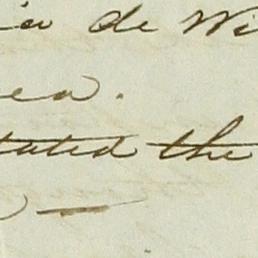 de Wi
ea.
tated the